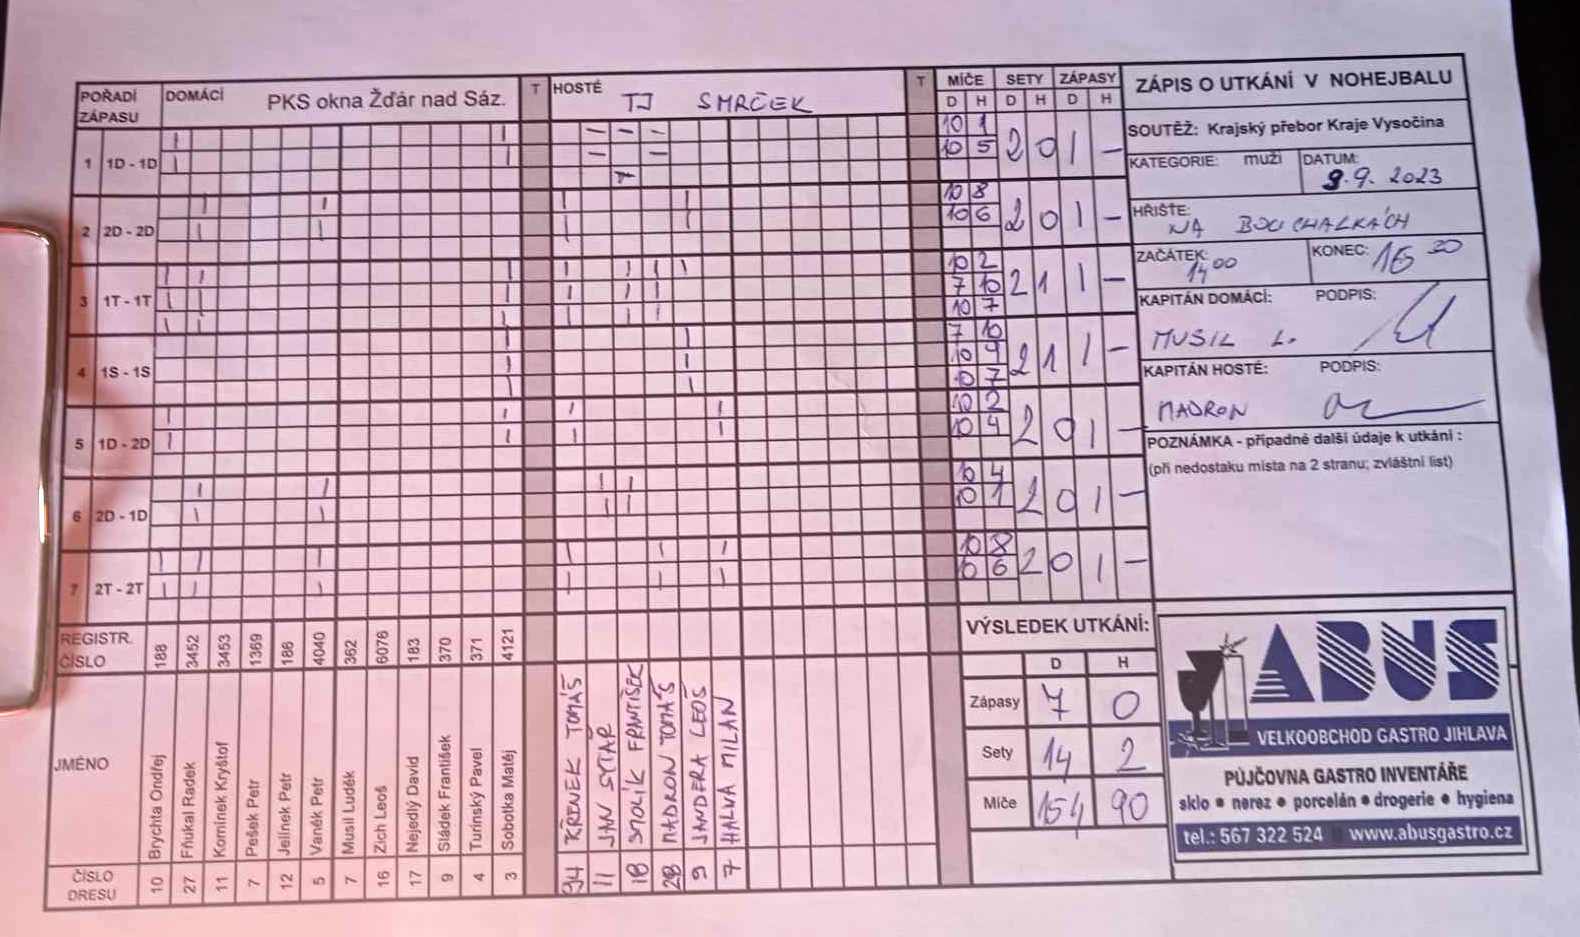 POŘADÍ ZÁPASU DOMÁCÍ PKS okna Žďár nad Sáz. T HOSTÉ TJ SMRČEK T MÍČE SETY ZÁPASY
D H D H D H
1 1D - 1D 10 1 10 5 2 0 1 -
2 2D - 2D 10 8 10 6 2 0 1 -
3 1T - 1T 10 2 7 10 10 7 2 1 1 -
4 1S - 1S 7 10 10 9 10 7 2 1 1 -
5 1D - 2D 10 2 10 4 2 0 1 -
6 2D - 1D 10 4 10 1 2 0 1 -
7 2T - 2T 10 8 10 6 2 0 1 -
REGISTR. ČÍSLO 188 3452 3453 1369 186 4040 362 6076 183 370 371 4121
JMÉNO
Brychta Ondřej
Fňukal Radek
Komínek Kryštof
Pešek Petr
Jelínek Petr
Vaněk Petr
Musil Luděk
Zich Leoš
Nejedlý David
Sládek František
Turinský Pavel
Sobotka Matěj
KŘENEK TOMÁŠ
JAN SYTAŘ
SMOLÍK FRANTIŠEK
MADRON TOMÁŠ
JANDERA LEOŠ
HALVA MILAN
ČÍSLO DRESU 10 27 11 7 12 5 7 16 17 9 4 3 94 11 18 28 9 7
ZÁPIS O UTKÁNÍ V NOHEJBALU
SOUTĚŽ: Krajský přebor Kraje Vysočina
KATEGORIE: muži DATUM: 9.9. 2023
HŘIŠTĚ: NA BOUCHALKÁCH
ZAČÁTEK: 14 00 KONEC: 16 30
KAPITÁN DOMÁCÍ: PODPIS:
MUSIL L.
KAPITÁN HOSTÉ: PODPIS:
MADRON
POZNÁMKA - případné další údaje k utkání :
(při nedostaku místa na 2 stranu; zvláštní list)
VÝSLEDEK UTKÁNÍ:
D H
Zápasy 7 0
Sety 14 2
Míče 154 90
ABUS
VELKOOBCHOD GASTRO JIHLAVA
PŮJČOVNA GASTRO INVENTÁŘE
sklo • nerez • porcelán • drogerie • hygiena
tel.: 567 322 524 www.abusgastro.cz